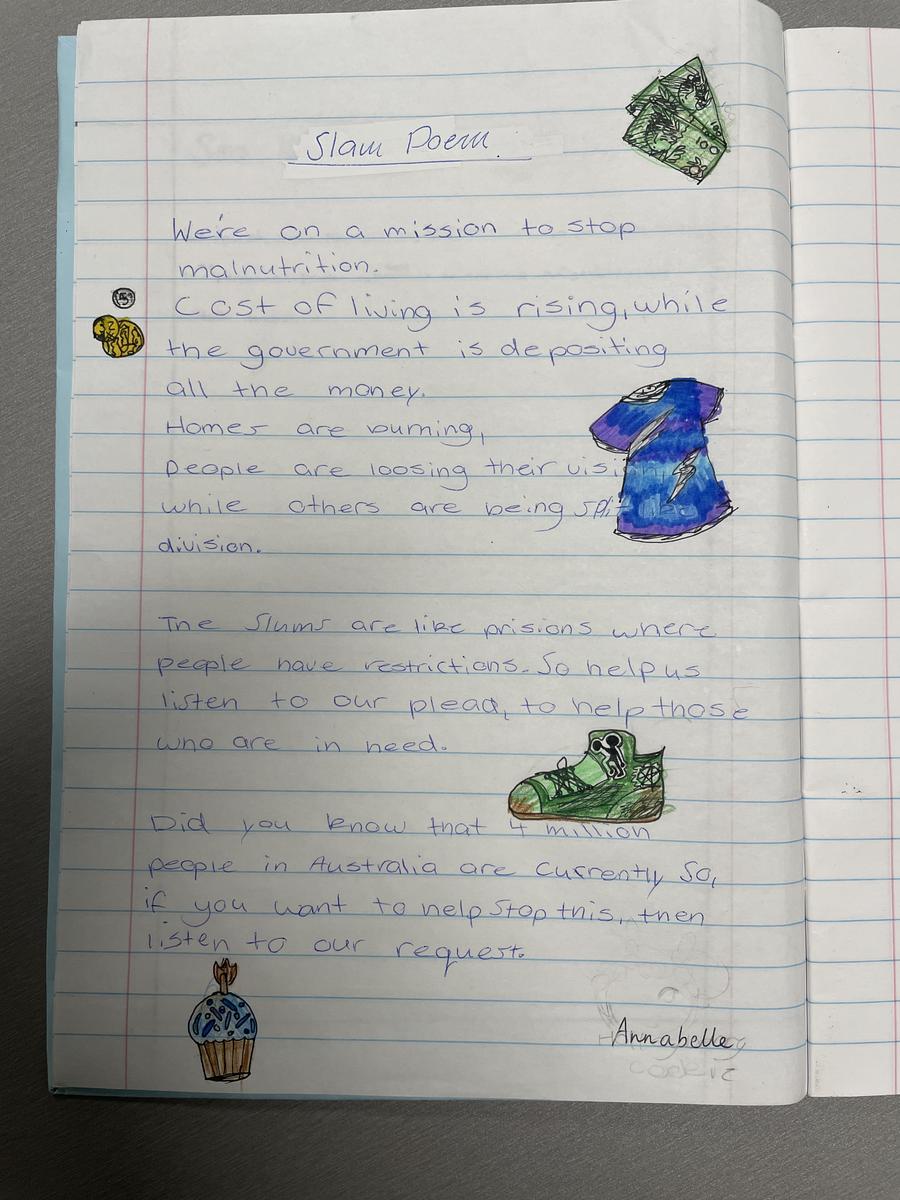 Slam Poem.
We're on a mission to stop
malnutrition.
Cost of living is rising, while
the government is depositing
all the money.
Homes are burning,
People are loosing their visi
while others are being spl
division.
The Slums are like prisions where
people have restrictions. So help us
listen to our plead, to help those
who are in need.
Did you know that 4 million
people in Australia are currently So,
if you want to help stop this, then
listen to our request.
Annabelle